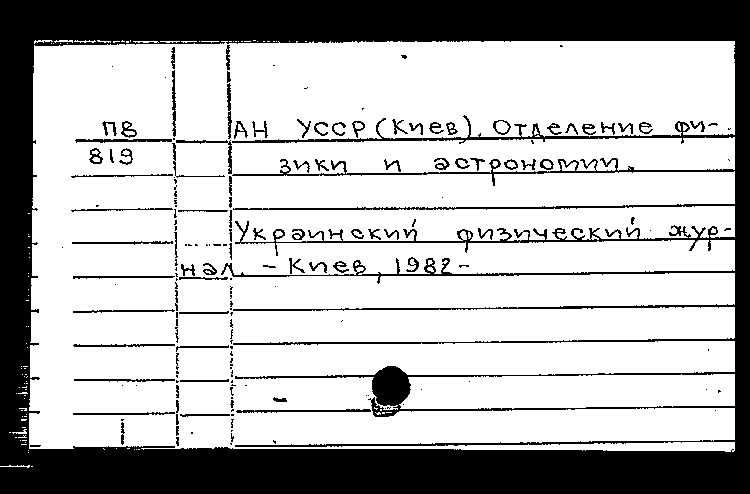 ПВ АН УССР (Киев). Отделение фи-
819 зики и астрономии.
Украинский физический жур-
нал. - Киев, 1982-